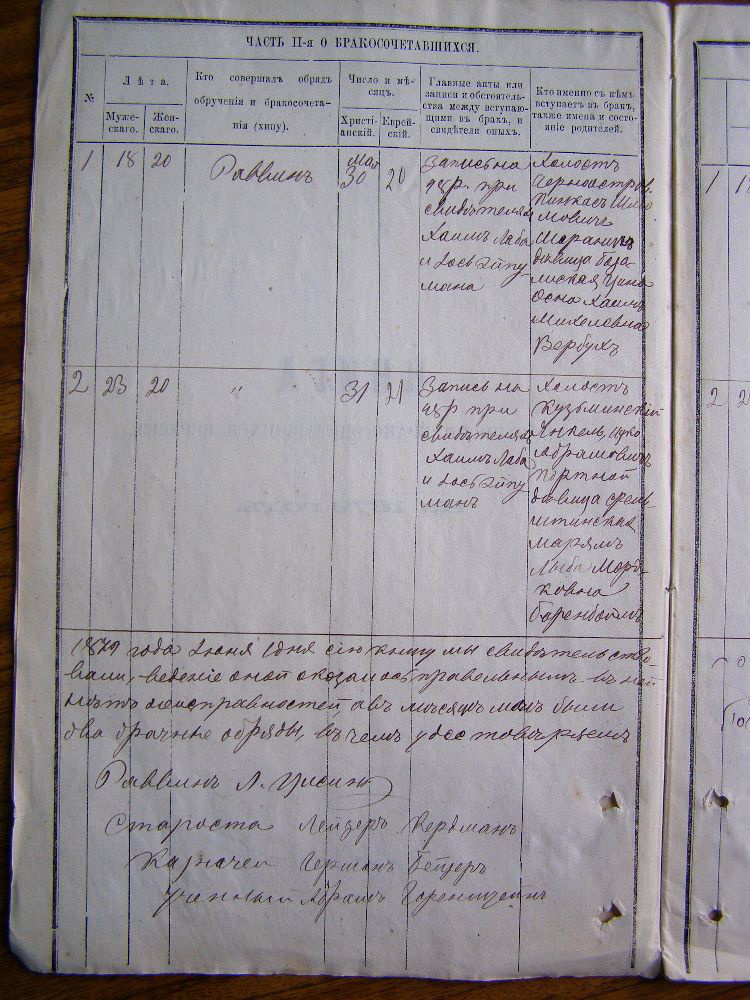 ЧАСТЬ II-я О БРАКОСОЧЕТАВШИХСЯ.
№
Лѣта.
Муже-
скаго.
Жен-
скаго.
Кто совершалъ обрядъ
обрученія и бракосочета-
нія (хипу).
Число и мѣ-
сяцъ.
Христі-
анскій.
Еврей-
скій.
Главные акты или
записи и обстоятель-
ства между вступаю-
щими въ бракъ, и
свидѣтели оныхъ.
Кто именно съ кѣмъ
вступаетъ въ бракъ,
также имена и состо-
яніе родителей.
1
18
20
Раввинъ
Май
30
20
Запись на
48 р. при
свидѣтеляхъ
Хаимъ Лаба
и Іось
мана
Холостъ
Черноостров.
Пинкасъ Шлио
мовичъ
дѣвица База
лійская
Осна Хаимъ
Михелевна
Вербухъ
2
23
20
"
31
21
Запись на
48 р при
свидѣтеляхъ
Хаимъ Лаба
и Іось
манъ
Холостъ
Кузьминскій
Янкель Ицко
Абрамовичъ
Портной
дѣвица Фель-
штинская
Марямъ
Лыба Морд-
ковна
Баренбоймъ
1879 года Іюня 1 дня сію книгу мы свидѣтельство-
вали, веденіе оной оказалось правельнымъ въ ней
нѣтъ неисправностей, а въ мѣсяцѣ маѣ были
два брачные обряды, въ чемъ удостовѣряемъ
Раввинъ Л.
Староста Лейзеръ Кердманъ
Казначей Германъ Бейцеръ
Ученный Абрамъ Горенштейнъ
1
2